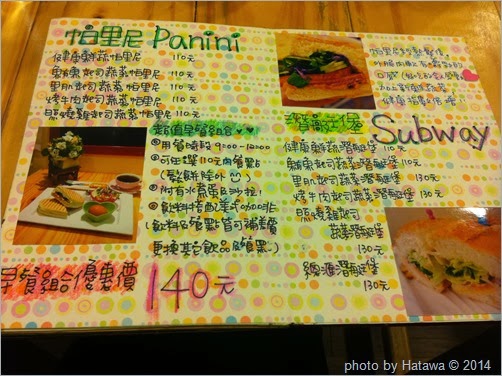 帕里尼 Panini
健康鮮蔬帕里尼 110元
鮪魚起司蔬菜帕里尼 110元
里肌起司蔬菜帕里尼 110元
烤牛肉起司蔬菜帕里尼 110元
煙燻雞起司蔬菜帕里尼 110元
超值早餐組合
用餐時段 9:00-12:00
可任選110元內餐點
(鬆餅除外)
附有水果與沙拉!
飲料搭配美式咖啡
(飲料及餐點皆可補差價
更換其它飲品及餐點)
早餐組合優惠價 140元
帕里尼
潛艇堡 Subway
健康鮮蔬潛艇堡 110元
鮪魚起司蔬菜潛艇堡 110元
里肌起司蔬菜潛艇堡 130元
烤牛肉起司蔬菜潛艇堡 130元
煙燻雞起司
蔬菜潛艇堡
130元
總匯潛艇堡
130元
photo by Hatawa © 2014